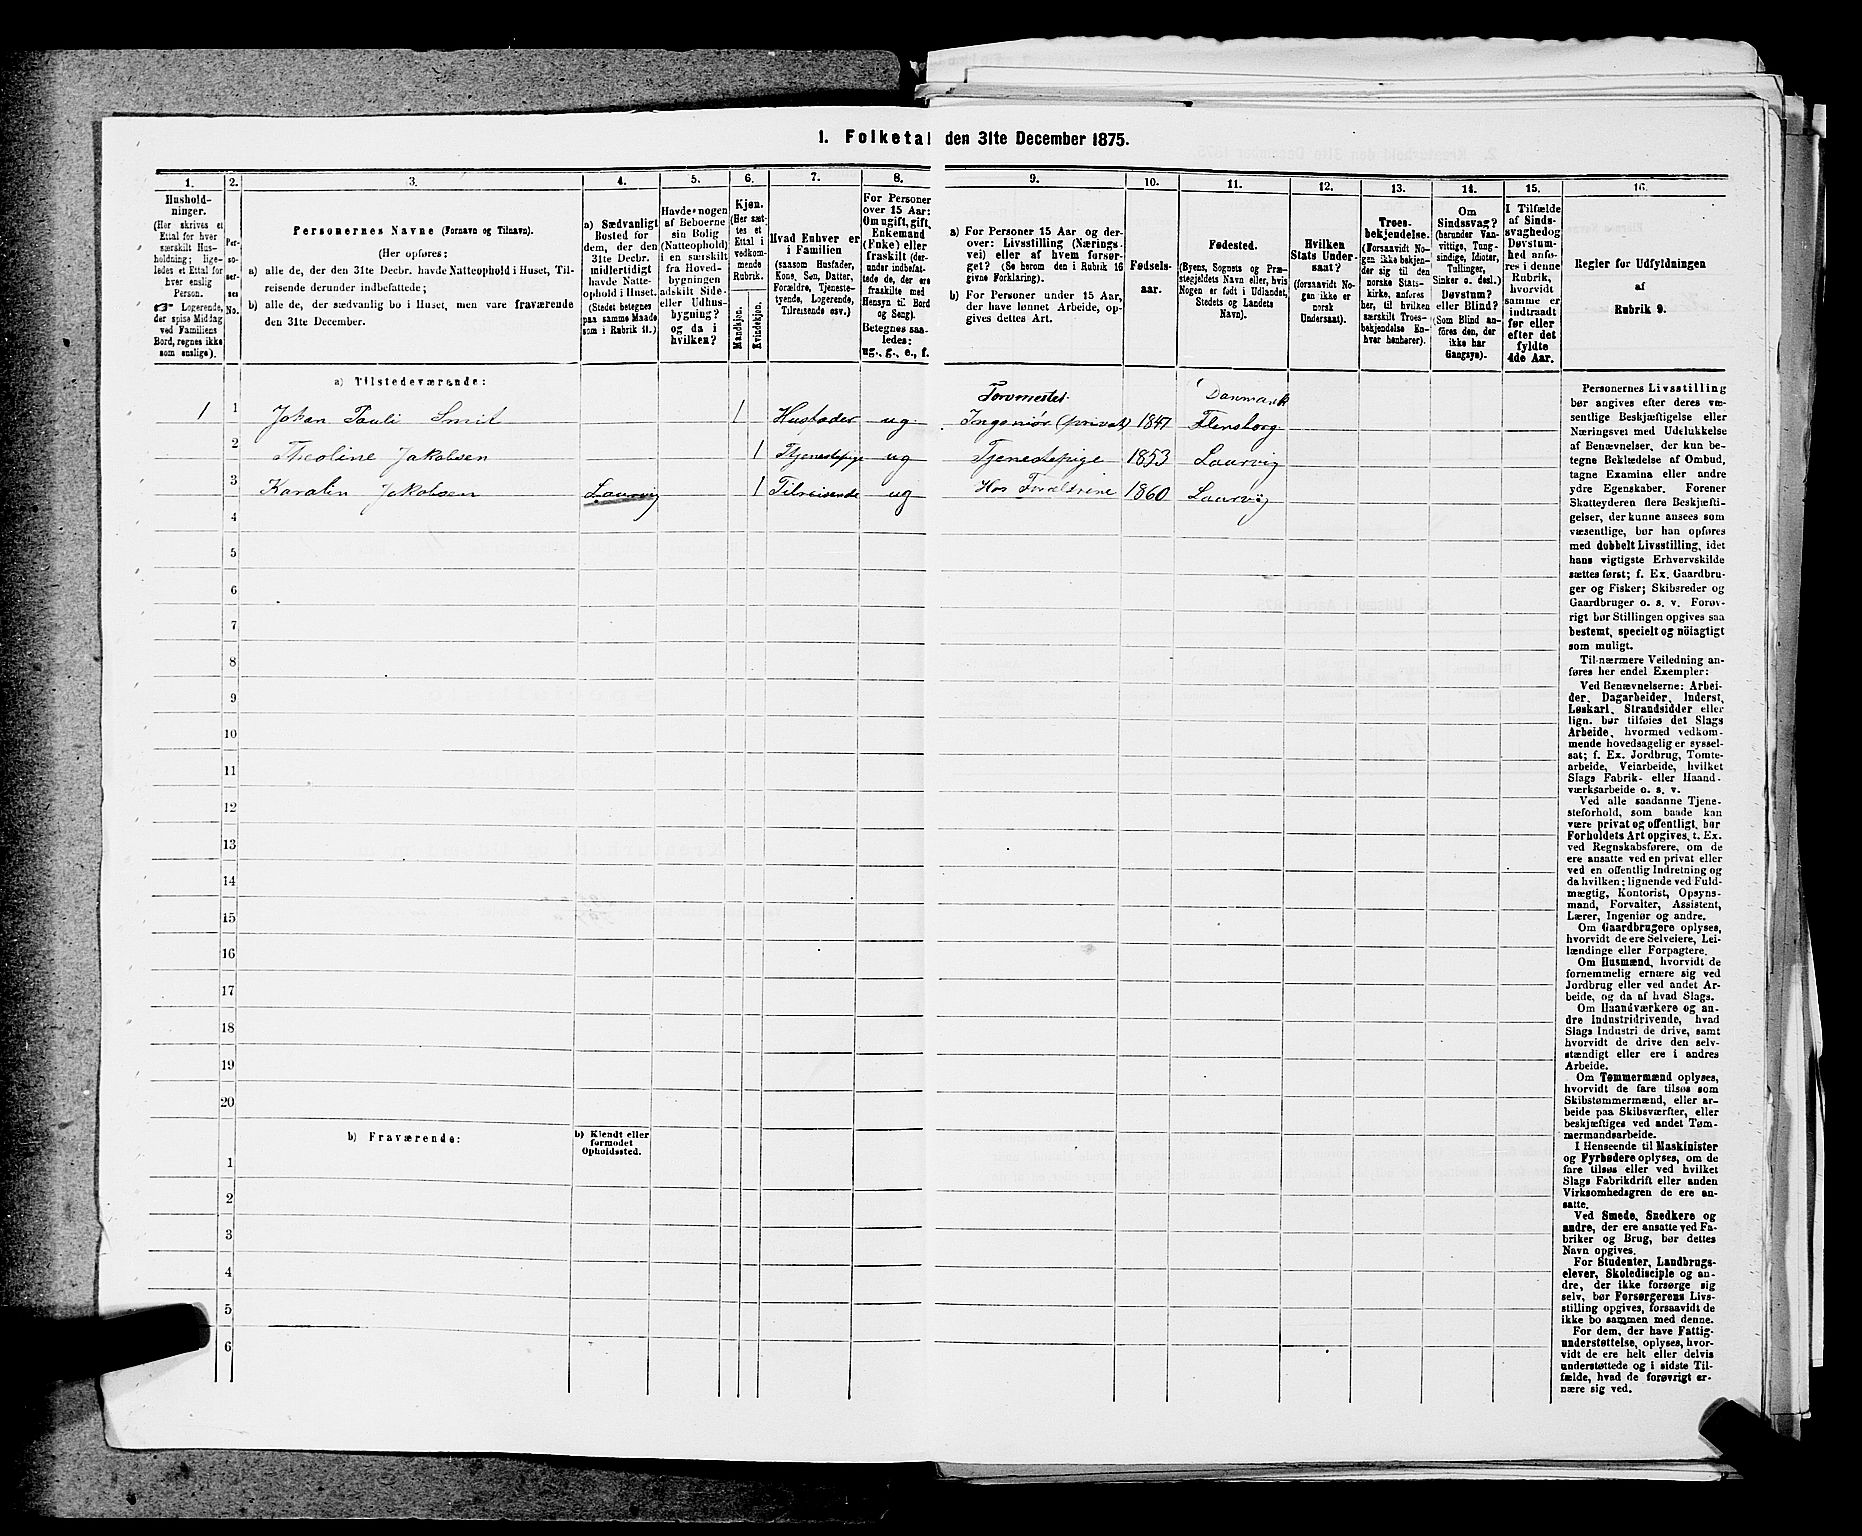 1. Folketal den 31te December 1875.
1.
2.
3.
4.
5.
6.
7.
8.
9.
10.
11.
12.
13.
14.
15.
16.
Hushold-
ninger.
(Her skrives et
Ettal for hver
særskilt Hus-
holdning; lige-
ledes et Ettal for
hver enslig
Person.
Logerende,
der spise Middag
ved Familiens
Bord, regnes ikke
som enslige).
Per-
so-
ner-
nes
No.
Personernes Navne (Fornavn og Tilnavn).
(Her opføres:
a) alle de, der den 31te Decbr. havde Natteophold i Huset, Til-
reisende derunder indbefattede;
b) alle de, der sædvanlig bo i Huset, men vare fraværende
den 31te December.
a) Sædvanligt
Bosted for
dem, der den
31te Decbr.
midlertidigt
havde Natte-
ophold i Huset.
(Stedet betegnes
paa samme Maade
som i Rubrik 11.)
Havde nogen
af Beboerne
sin Bolig
(Natteophold)
i en særskilt
fra Hoved-
bygningen
adskilt Side-
eller Udhus-
bygning?
og da i
hvilken?
Kjøn.
(Her sæt-
tes et
Ettal i
vedkom-
mende
Rubrik.
Mandkjøn.
Kvindekjøn.
Hvad Enhver er
i Familien
(saasom Husfader,
Kone, Søn, Datter,
Forældre, Tjeneste-
tyende, Logerende,
Tilreisende osv.)
For Personer
over 15 Aar:
Om ugift, gift,
Enkemand
(Enke) eller
fraskilt (der-
under indbefat-
tede de, der ere
fraskilte med
Hensyn til Bord
og Seng).
Betegnes saa-
ledes:
ug., g., e., f.
a) For Personer over 15 Aar og der-
over: Livsstilling (Nærings-
vei) eller af hvem forsør-
get? (Se herom den i Rubrik 16
givne Forklaring).
b) For Personer under 15 Aar,
der have lønnet Arbeide, op-
gives dettes Art.
Fødsels-
aar.
Fødested.
(Byens, Sognets og Præ-
stegjeldets Navn eller, hvis
Nogen er født i Udlandet,
Stedets og Landets
Navn).
Hvilken
Stats Under-
saat?
(forsaavidt No-
gen ikke er
norsk
Undersaat).
Troes-
bekjendelse.
(Forsaavidt No-
gen ikke bekjen-
der sig til den
norske Stats-
kirke, anføres
her, til hvilken
særskilt Troes-
bekjendelse En-
hver henhører).
Om
Sindssvag?
(herunder Van-
vittige, Tung-
sindige, Idioter,
Tullinger,
Sinker o. desl.)
Døvstum?
eller Blind?
(Som Blind an-
føres den, der
ikke har
Gangsyn).
I Tilfælde
af Sinds-
svaghed og
Døvstum-
hed anfø-
res i denne
Rubrik,
hvorvidt
samme er
indtraadt
før eller
efter det
fyldte
4de Aar.
Regler for Udfyldningen
af
Rubrik 9.
a) Tilstedeværende:
Danmark
1 1 Johan Pauli Smit 1 Husfader ug. Ingeniør (privat) 1847 Flensborg
2 Theoline Jakobsen 1 Tjenestepige ug Tjenestepige 1853 Laurvig
3 Karalin Jakobsen Laurvig 1 Tilreisende ug Hos Forældrene 1860 Laurvig
4
5
6
7
8
9
10
11
12
13
14
15
16
17
18
19
20
b) Fraværende:
b) Kjendt eller
formodet
Opholdssted.
1
2
3
4
5
6
Personernes Livsstilling
bør angives efter deres væ-
sentlige Beskjæftigelse eller
Næringsvei med Udelukkelse
af Benævnelser, der kun be-
tegne Beklædelse af Ombud,
tagne Examina eller andre
ydre Egenskaber. Forener
Skatteyderen flere Beskjæfti-
gelser, der kunne ansees som
væsentlige, bør han opføres
med dobbelt Livsstilling, idet
hans vigtigste Erhvervskilde
sættes først; f. Ex. Gaardbru-
ger og Fisker; Skibsreder og
Gaardbruger o. s. v. Forøv-
rigt bør Stillingen opgives saa
bestemt, specielt og nöiagtigt
som muligt.
Til nærmere Veiledning an-
føres her endel Exempler:
Ved Benævnelserne: Arbei-
der, Dagarbeider, Inderst,
Løskarl, Strandsidder eller
lign. bør tilføies det Slags
Arbeide, hvormed vedkom-
mende hovedsagelig er syssel-
sat; f. Ex. Jordbrug, Tomte-
arbeide, Veiarbeide, hvilket
Slags Fabrik- eller Haand-
værksarbeide o. s. v.
Ved alle saadanne Tjene-
steforhold, som baade kan
være privat og offentligt, bør
Forholdets Art opgives, t. Ex.
ved Regnskabsførere, om de
ere ansatte ved en privat eller
ved en offentlig Indretning og
da hvilken; lignende ved Fuld-
mægtig, Kontorist, Opsyns-
mand, Forvalter, Assistent,
Lærer, Ingeniør og andre.
Om Gaardbrugere oplyses,
hvorvidt de ere Selveiere, Lei-
lændinge eller Forpagtere.
Om Husmænd, hvorvidt de
fornemmelig ernære sig ved
Jordbrug eller ved andet Ar-
beide, og da af hvad Slags.
Om Haandværkere og an-
dre Industridrivende, hvad
Slags Industri de drive, samt
hvorvidt de drive den selv-
stændigt eller ere i andres
Arbeide.
Om Tømmermænd oplyses,
hvorvidt de fare tilsøs som
Skibstømmermænd, eller ar-
beide paa Skibsværfter, eller
beskjæftiges ved andet Tøm-
mermandsarbeide.
I Henseende til Maskinister
og Fyrbødere oplyses, om de
fare tilsøs eller ved hvilket
Slags Fabrikdrift eller anden
Virksomhedsgren de ere an-
satte.
Ved Smede, Snedkere og
andre, der ere ansatte ved Fa-
briker og Brug, bør dettes
Navn opgives.
For Studenter, Landbrugs-
elever, Skoledisciple og an-
dre, der ikke forsørge sig
selv, bør Forsørgerens Livs-
stilling opgives, forsaavidt de
ikke bo sammen med denne.
For dem, der have Fattig-
understøttelse, oplyses, hvor-
vidt de ere helt eller delvis
understøttede og i sidste Til-
fælde, hvad de forøvrigt er-
nære sig ved.